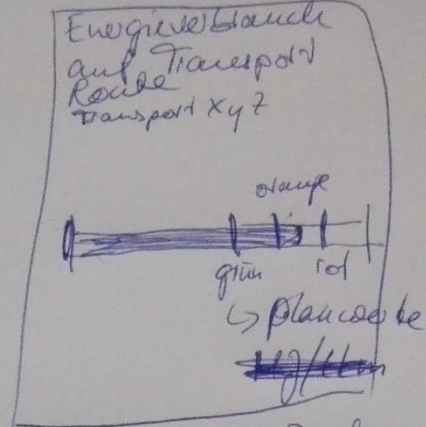 Energieverbrauch
auf Transport
Route
Transport xyz
orange
grün rot
↳ Planwerte